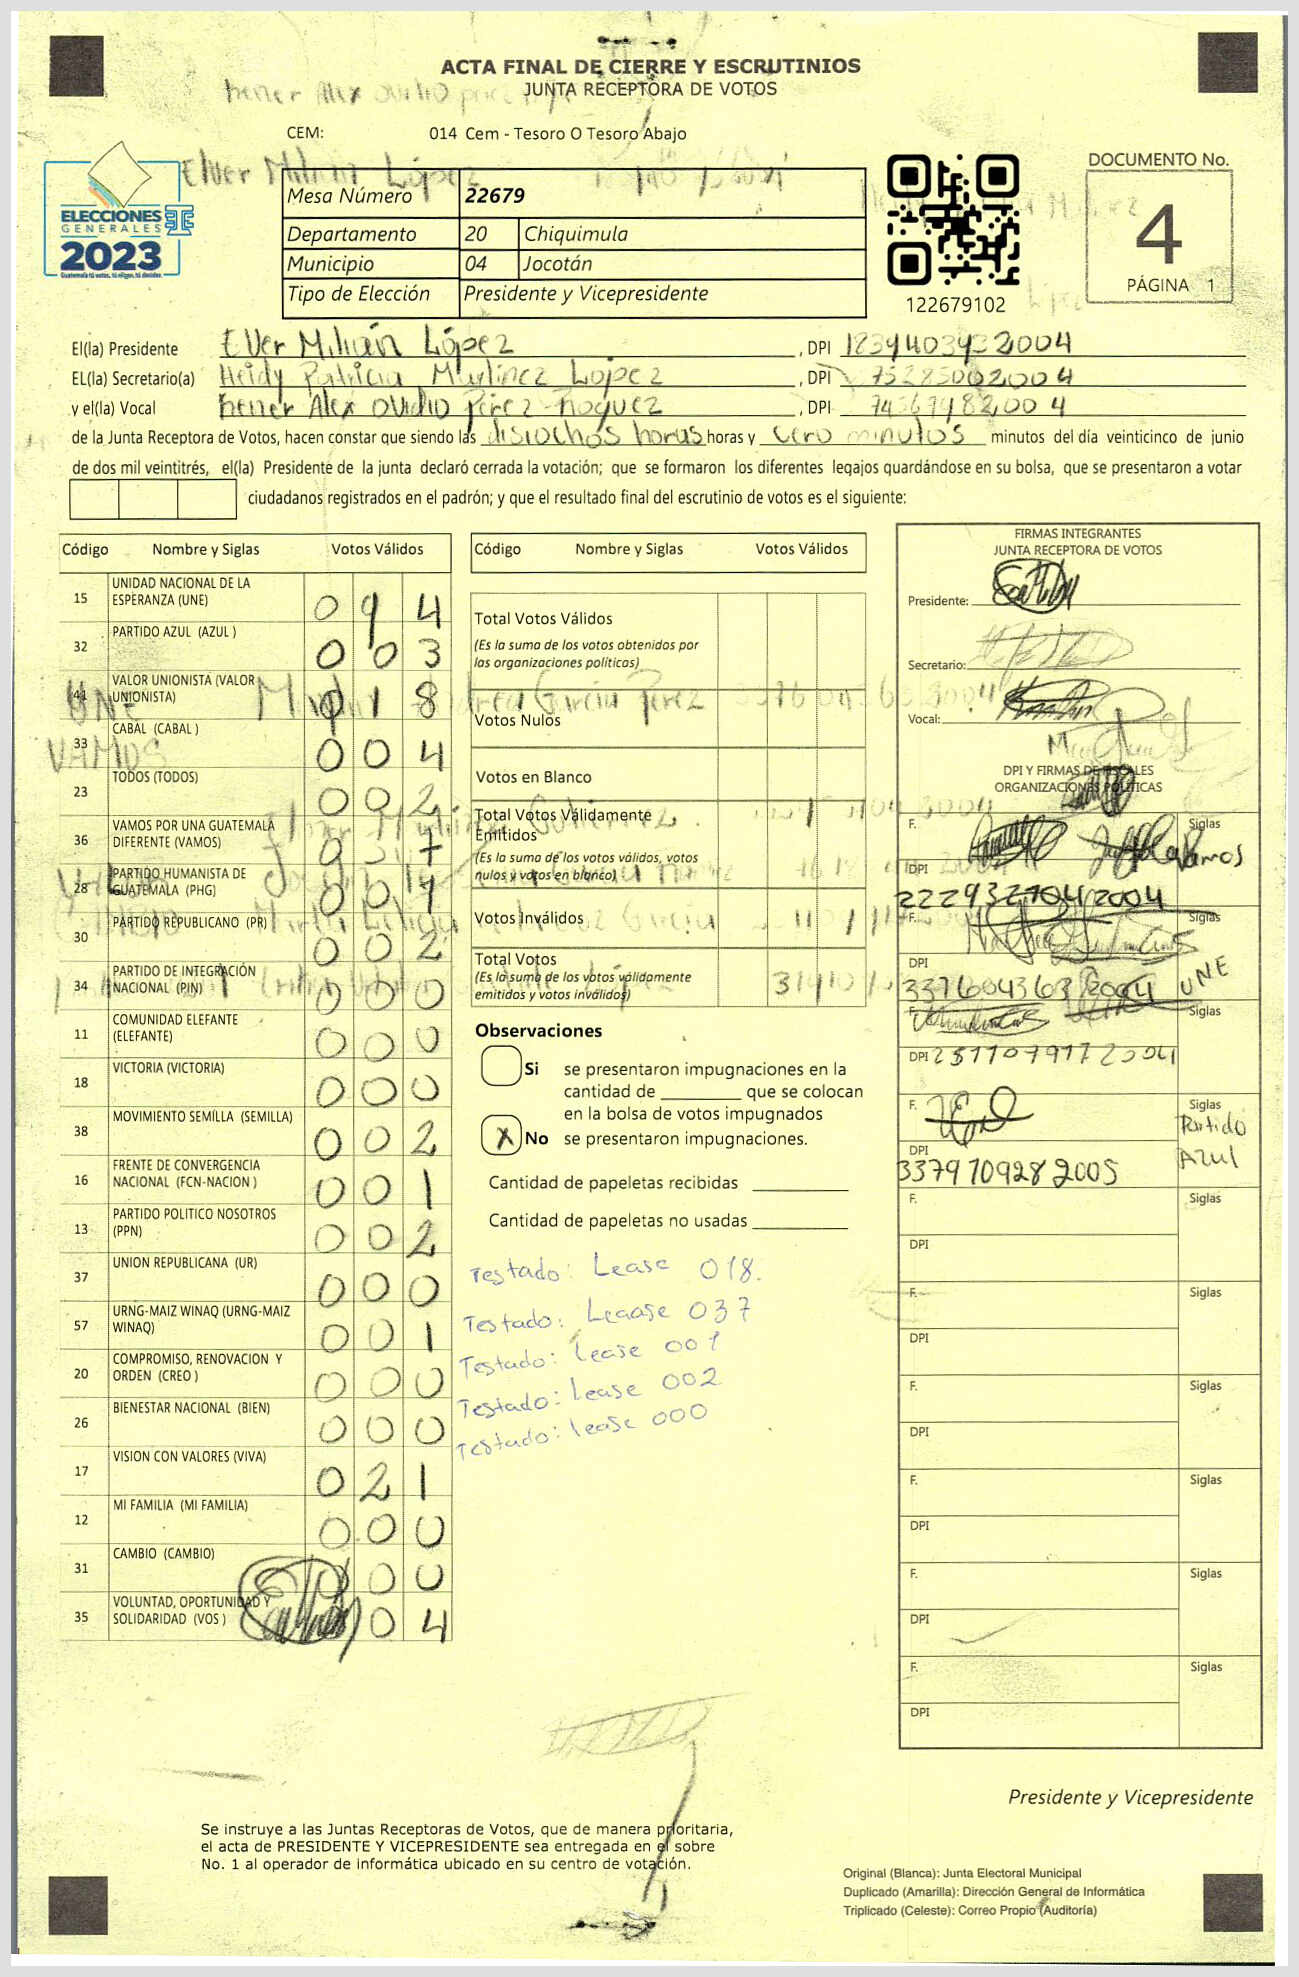 ACTA FINAL DE CIERRE Y ESCRUTINIOS
JUNTA RECEPTORA DE VOTOS
CEM: 014 Cem - Tesoro O Tesoro Abajo
ELECCIONES
GENERALES
2023
Guatemala tú votas, tú eliges, tú decides
Mesa Número 22679
Departamento 20 Chiquimula
Municipio 04 Jocotán
Tipo de Elección Presidente y Vicepresidente
122679102
DOCUMENTO No.
4
PÁGINA 1
El(la) Presidente Elver Milián López , DPI
EL(la) Secretario(a) Heidy Patricia Martinez Lopez , DPI 75285002004
y el(la) Vocal hener Alex Ovidio Pérez , DPI
de la Junta Receptora de Votos, hacen constar que siendo las disiochos horas horas y cero minutos minutos del día veinticinco de junio
de dos mil veintitrés, el(la) Presidente de la junta declaró cerrada la votación; que se formaron los diferentes legajos quardándose en su bolsa, que se presentaron a votar
ciudadanos registrados en el padrón; y que el resultado final del escrutinio de votos es el siguiente:
Código Nombre y Siglas Votos Válidos
15 UNIDAD NACIONAL DE LA ESPERANZA (UNE) 0 9 4
32 PARTIDO AZUL (AZUL ) 0 0 3
41 VALOR UNIONISTA (VALOR UNIONISTA) 0 1 8
33 CABAL (CABAL ) 0 0 4
23 TODOS (TODOS) 0 0 2
36 VAMOS POR UNA GUATEMALA DIFERENTE (VAMOS) 0 3 7
28 PARTIDO HUMANISTA DE GUATEMALA (PHG) 0 0 1
30 PARTIDO REPUBLICANO (PR) 0 0 2
34 PARTIDO DE INTEGRACIÓN NACIONAL (PIN) 0 0 0
11 COMUNIDAD ELEFANTE (ELEFANTE) 0 0 0
18 VICTORIA (VICTORIA) 0 0 0
38 MOVIMIENTO SEMILLA (SEMILLA) 0 0 2
16 FRENTE DE CONVERGENCIA NACIONAL (FCN-NACION ) 0 0 1
13 PARTIDO POLITICO NOSOTROS (PPN) 0 0 2
37 UNION REPUBLICANA (UR) 0 0 0
57 URNG-MAIZ WINAQ (URNG-MAIZ WINAQ) 0 0 1
20 COMPROMISO, RENOVACION Y ORDEN (CREO ) 0 0 0
26 BIENESTAR NACIONAL (BIEN) 0 0 0
17 VISION CON VALORES (VIVA) 0 2 1
12 MI FAMILIA (MI FAMILIA) 0 0 0
31 CAMBIO (CAMBIO) 0 0 0
35 VOLUNTAD, OPORTUNIDAD Y SOLIDARIDAD (VOS ) 0 4
Código Nombre y Siglas Votos Válidos
Total Votos Válidos
(Es la suma de los votos obtenidos por
las organizaciones políticas)
Votos Nulos
Votos en Blanco
Total Votos Válidamente
Emitidos
(Es la suma de los votos válidos, votos
nulos y votos en blanco)
Votos Inválidos
Total Votos
(Es la suma de los votos válidamente
emitidos y votos inválidos)
Observaciones
Si se presentaron impugnaciones en la
cantidad de ________ que se colocan
en la bolsa de votos impugnados
X No se presentaron impugnaciones.
Cantidad de papeletas recibidas
Cantidad de papeletas no usadas
Testado: Lease 018.
Testado: Leaase 037
Testado: Lease 001
Testado: Lease 002
Testado: lease 000
FIRMAS INTEGRANTES
JUNTA RECEPTORA DE VOTOS
Presidente:
Secretario:
Vocal:
DPI Y FIRMAS DE FISCALES
ORGANIZACIONES POLÍTICAS
F. Siglas Vamos
DPI 2229327042004
F. Siglas UNE
DPI 3376043632004
F. Siglas
DPI 2511079172004
F. Siglas Partido Azul
DPI 3379709282005
F. Siglas
DPI
F. Siglas
DPI
F. Siglas
DPI
F. Siglas
DPI
F. Siglas
DPI
F. Siglas
DPI
Presidente y Vicepresidente
Se instruye a las Juntas Receptoras de Votos, que de manera prioritaria,
el acta de PRESIDENTE Y VICEPRESIDENTE sea entregada en el sobre
No. 1 al operador de informática ubicado en su centro de votación.
Original (Blanca): Junta Electoral Municipal
Duplicado (Amarilla): Dirección General de Informática
Triplicado (Celeste): Correo Propio (Auditoría)